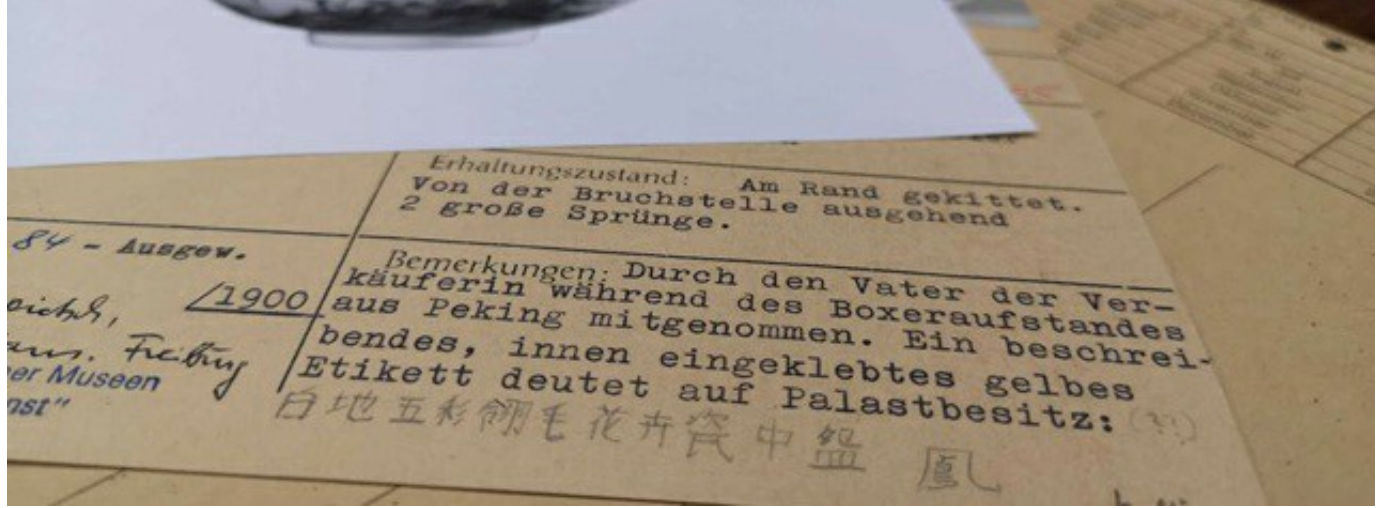 Erhaltungszustand: Am Rand gekittet.
Von der Bruchstelle ausgehend
2 große Sprünge.
84 - Ausgew.
/1900
Freiburg
er Museen
nst"
Bemerkungen: Durch den Vater der Ver-
käuferin während des Boxeraufstandes
aus Peking mitgenommen. Ein beschrei-
bendes, innen eingeklebtes gelbes
Etikett deutet auf Palastbesitz: (??)
白地五彩翎毛花卉瓷中盤 鳳